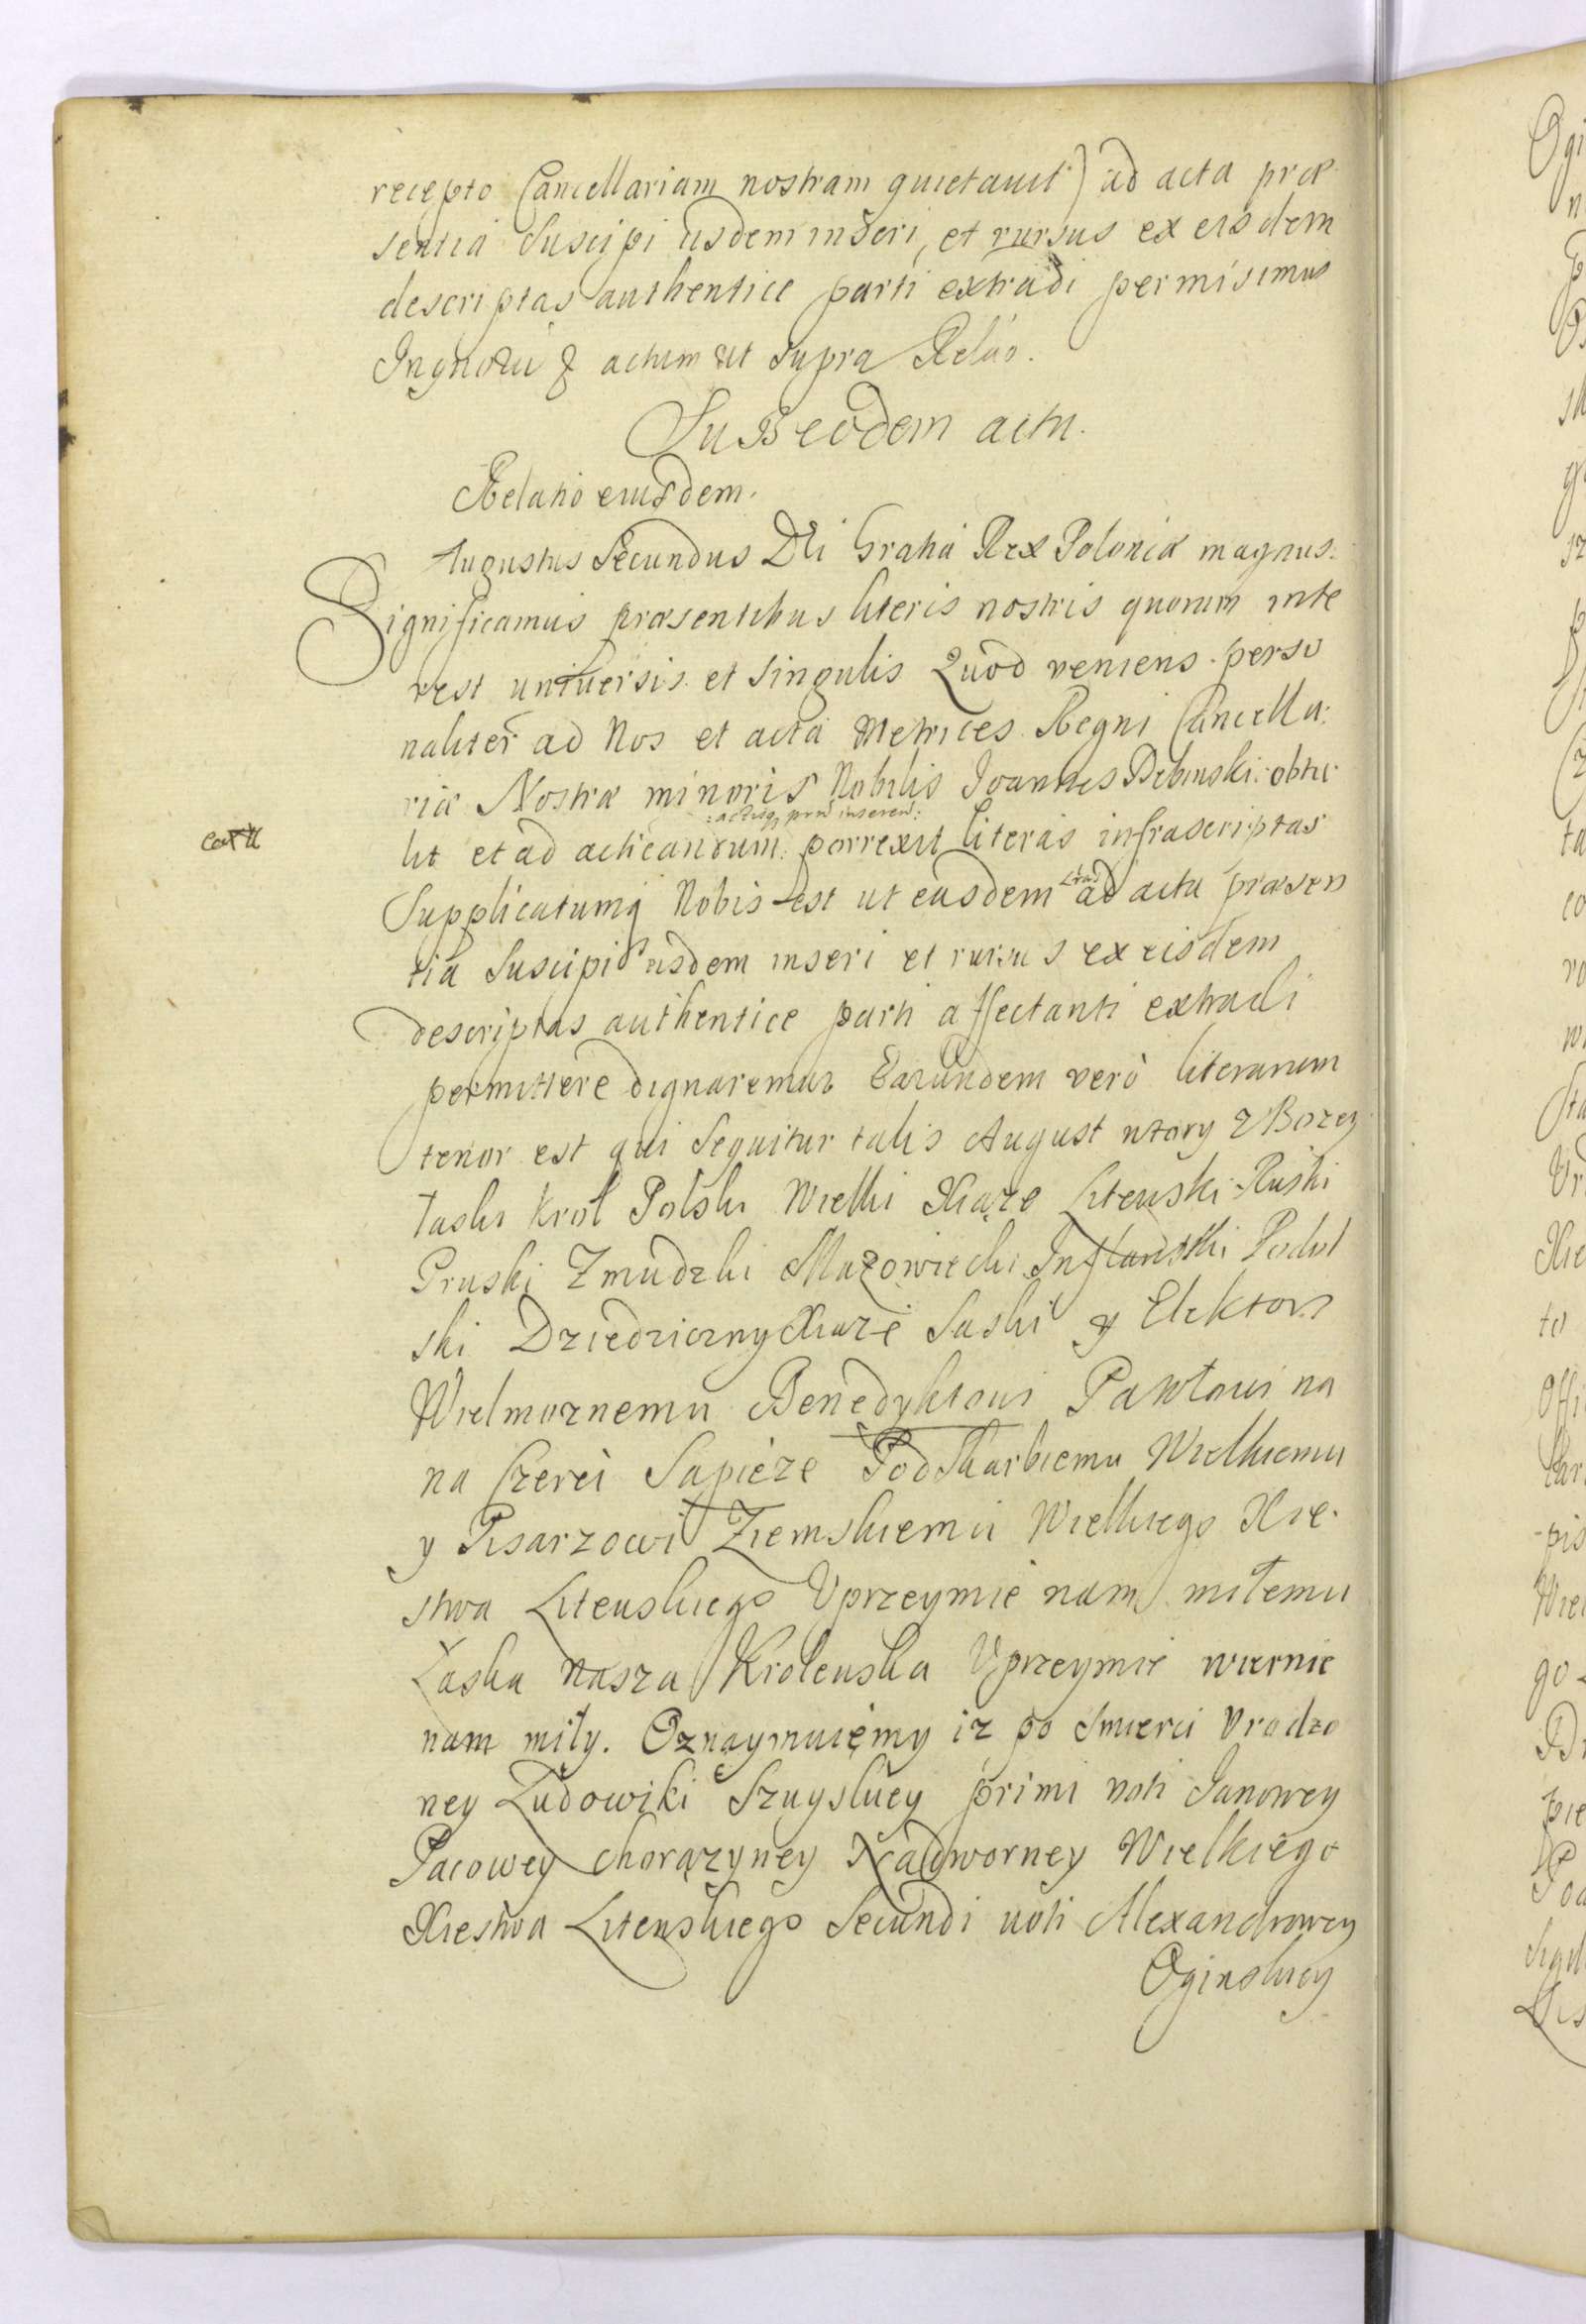 recepto Cancellariam nostram quietavit) ad acta præ
sentia Suscipi iisdem inseri, et rursus ex eisdem
descriptas authentice parti extradi permisimus
actum ut Supra Relāo.
Sub eodem actu.
Relatio eiusdem.
Augustus Secundus Dei Gratia Rex Poloniæ magnus.
Significamus præsentibus literis nostris quorum inte
rest universis et singulis Quod veniens perso
naliter ad Nos et acta Metrices Regni Cancella:
riæ Nostræ minoris Nobilis Joannes Debinski obtu
:actisq pnd inserend:
lit et ad acticandum porrexit literas infrascriptas
Supplicatumq Nobis est ut easdem Lras ad acta præsen
tia Suscipi iisdem inseri et rursus ex eisdem
descriptas authentice parti affectanti extradi
permittere dignaremur Earundem verò literarum
tenor est qui Sequitur talis August wtory z Bozey
łaski Krol Polski Wielki Xiąze Litewski Ruski
Pruski Zmudzki Mazowiecki Inflantski Podol
ski Dziedziczny Xiąze Saski y Elektor
Wielmoznemu Benedyktowi Pawłowi na
na Czerei Sapieze Podskarbiemu Wielkiemu
y Pisarzowi Ziemskiemu Wielkiego Xię
stwa Litewskiego Uprzeymie nam miłemu
Łaska Nasza Krolewska Uprzeymie wiernie
nam miły. Oznaymuiemy iz po smierci Urodzo
ney Ludowiki Szuyskiey primi voti Janowey
Pacowey chorązyney Nadworney Wielkiego
Xięstwa Litewskiego Secundi voti Alexandrowey
Oginskiey